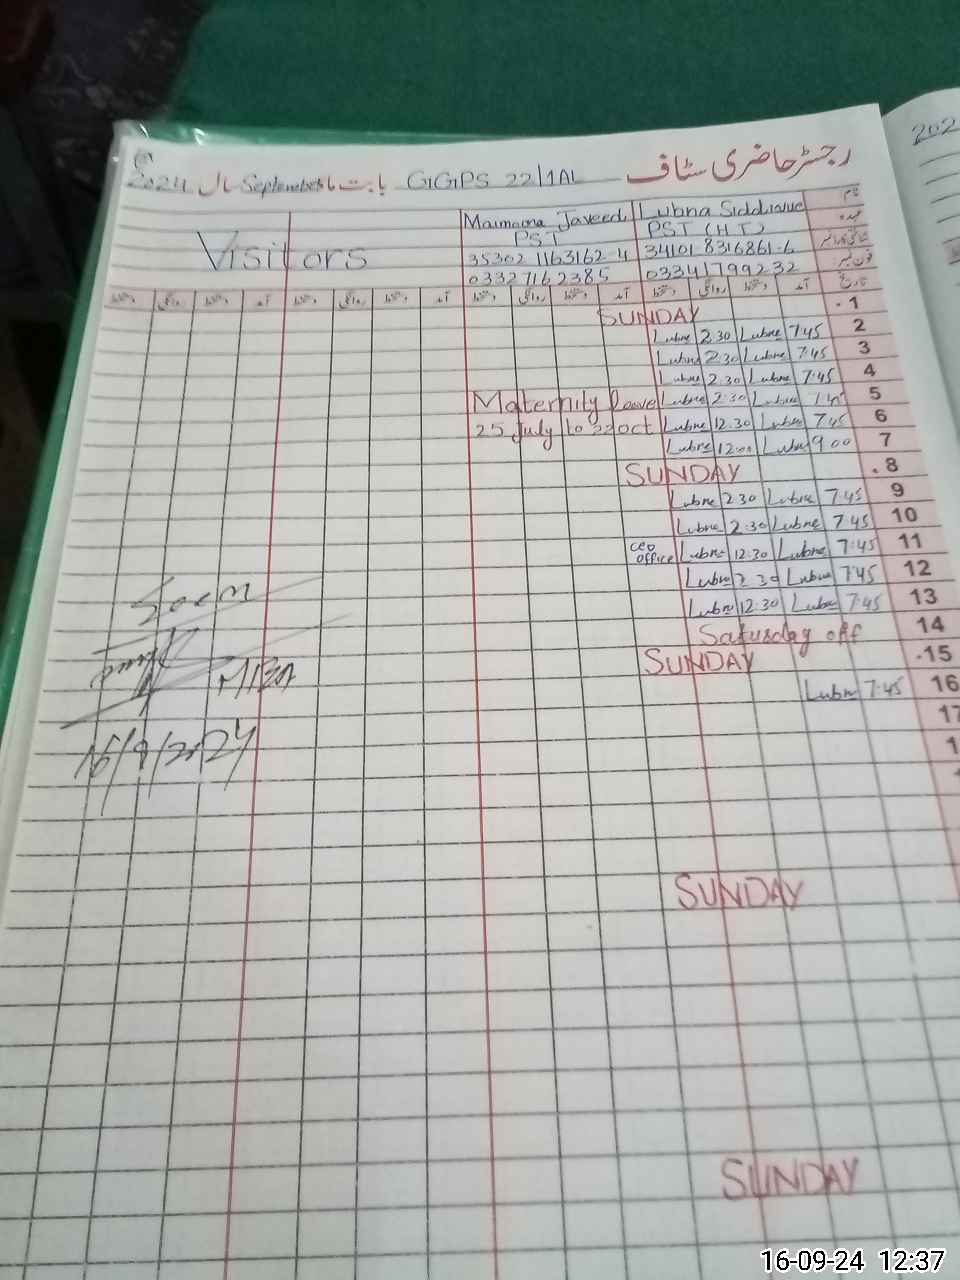 202
رجسٹر حاضری سٹاف GGPS 22/1AL بابت ماہ September سال 2024
Visitors Maimoona Javeed Lubna Siddique نام
PST PST (HT) عہدہ
35302 1163162-4 34101 8316861-6 شناختی کارڈ نمبر
03327162385 03341799232 فون نمبر
دستخط روانگی دستخط آمد دستخط روانگی دستخط آمد دستخط روانگی دستخط آمد دستخط روانگی دستخط آمد تاریخ
SUNDAY 1
Lubna 2.30 Lubna 7:45 2
Lubna 2.30 Lubna 7:45 3
Lubna 2.30 Lubna 7:45 4
Maternity leave Lubna 2:30 Lubna 7:45 5
25 July to 22 oct Lubna 12.30 Lubna 7:45 6
Lubna 12:00 Lubna 9.00 7
SUNDAY 8
Lubna 2 30 Lubna 7:45 9
Lubna 2:30 Lubna 7:45 10
CEO office Lubna 12:30 Lubna 7:45 11
Lubna 2 30 Lubna 7:45 12
Lubna 12:30 Lubna 7:45 13
Saturday off 14
SUNDAY 15
Lubna 7:45 16
17
16/9/2024
SUNDAY
SUNDAY
16-09-24 12:37